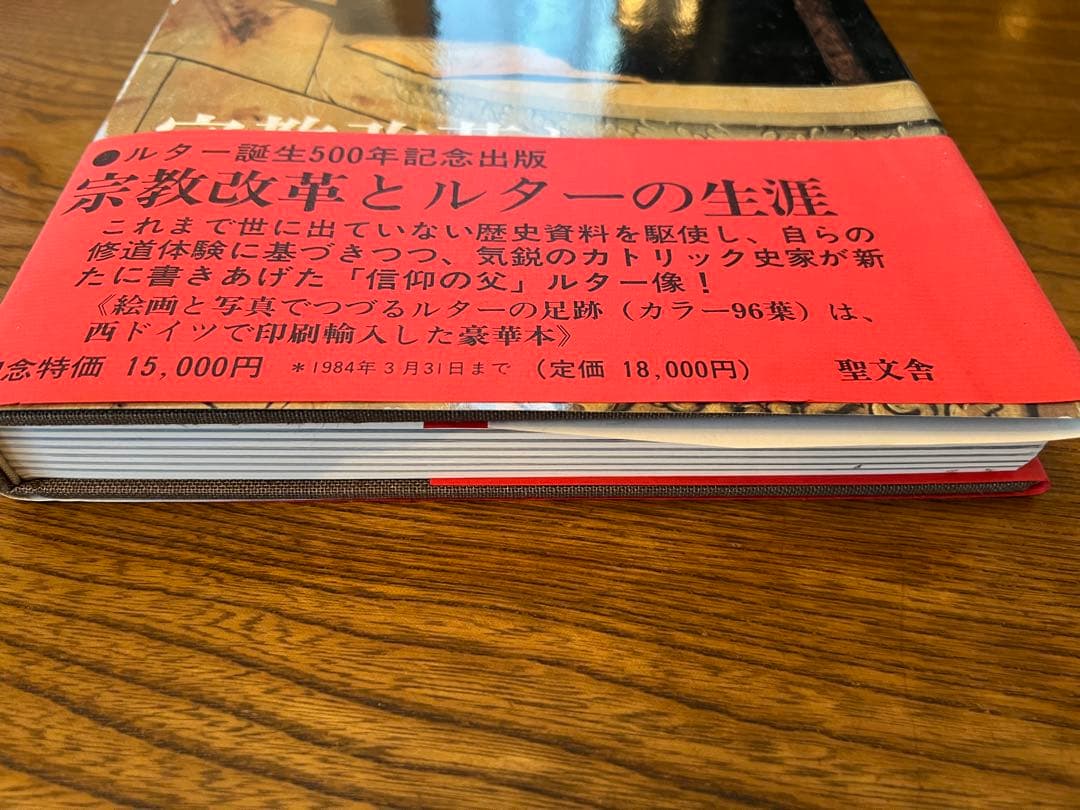 宗教改革と
●ルター誕生500年記念出版
宗教改革とルターの生涯
これまで世に出ていない歴史資料を駆使し、自らの
修道体験に基づきつつ、気鋭のカトリック史家が新
たに書きあげた「信仰の父」ルター像！
《絵画と写真でつづるルターの足跡（カラー96葉）は、
西ドイツで印刷輸入した豪華本》
念特価 15,000円 ＊1984年3月31日まで （定価 18,000円） 聖文舎